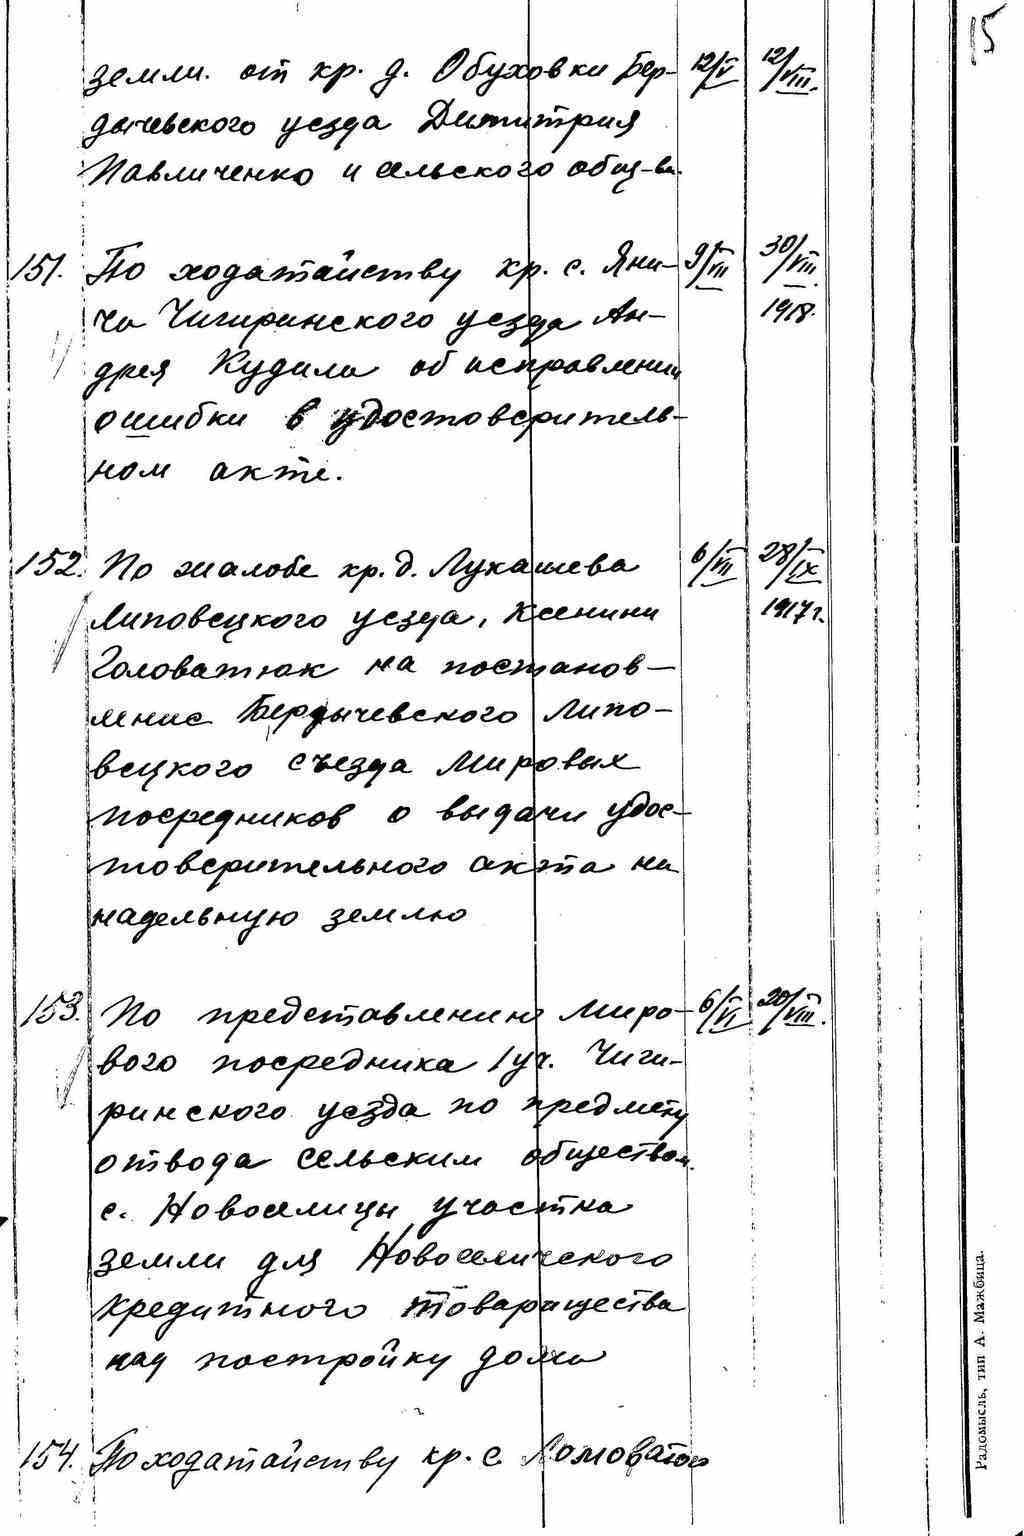 15
земли от кр. д. Обуховки Бер- 12/V 12/VIII.
дычевского уезда Димитрия
Павличенко и сельского общ-ва.
151. По ходатайству кр. с. Яни- 9/VII 30/VIII.
ча Чигиринского уезда Ан- 1918.
дрея Кудила об исправлении
ошибки в удостоверитель-
ном акте.
152. По жалобе кр. д. Лукашева 6/VII 28/IX
Липовецкого уезда, Ксении 1917 г.
Головатюк на постанов-
ление Бердычевского Липо-
вецкого съезда Мировых
посредников о выдачи удос-
товерительного акта на
надельную землю
153. По представлению Миро- 6/VI 20/VIII.
вого посредника 1 уч. Чиги-
ринского уезда по предмету
отвода сельским обществом
с. Новоселицы участка
земли для Новоселического
кредитного товарищества
над постройку дома
154. По ходатайству кр. с. Ломоватого
Радомысль, тип А. Мажбица.